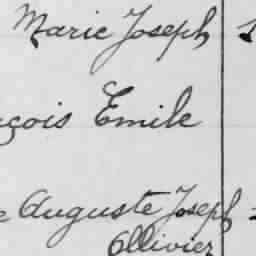 Marie Joseph
çois Emile
e Auguste Joseph
Ollivier